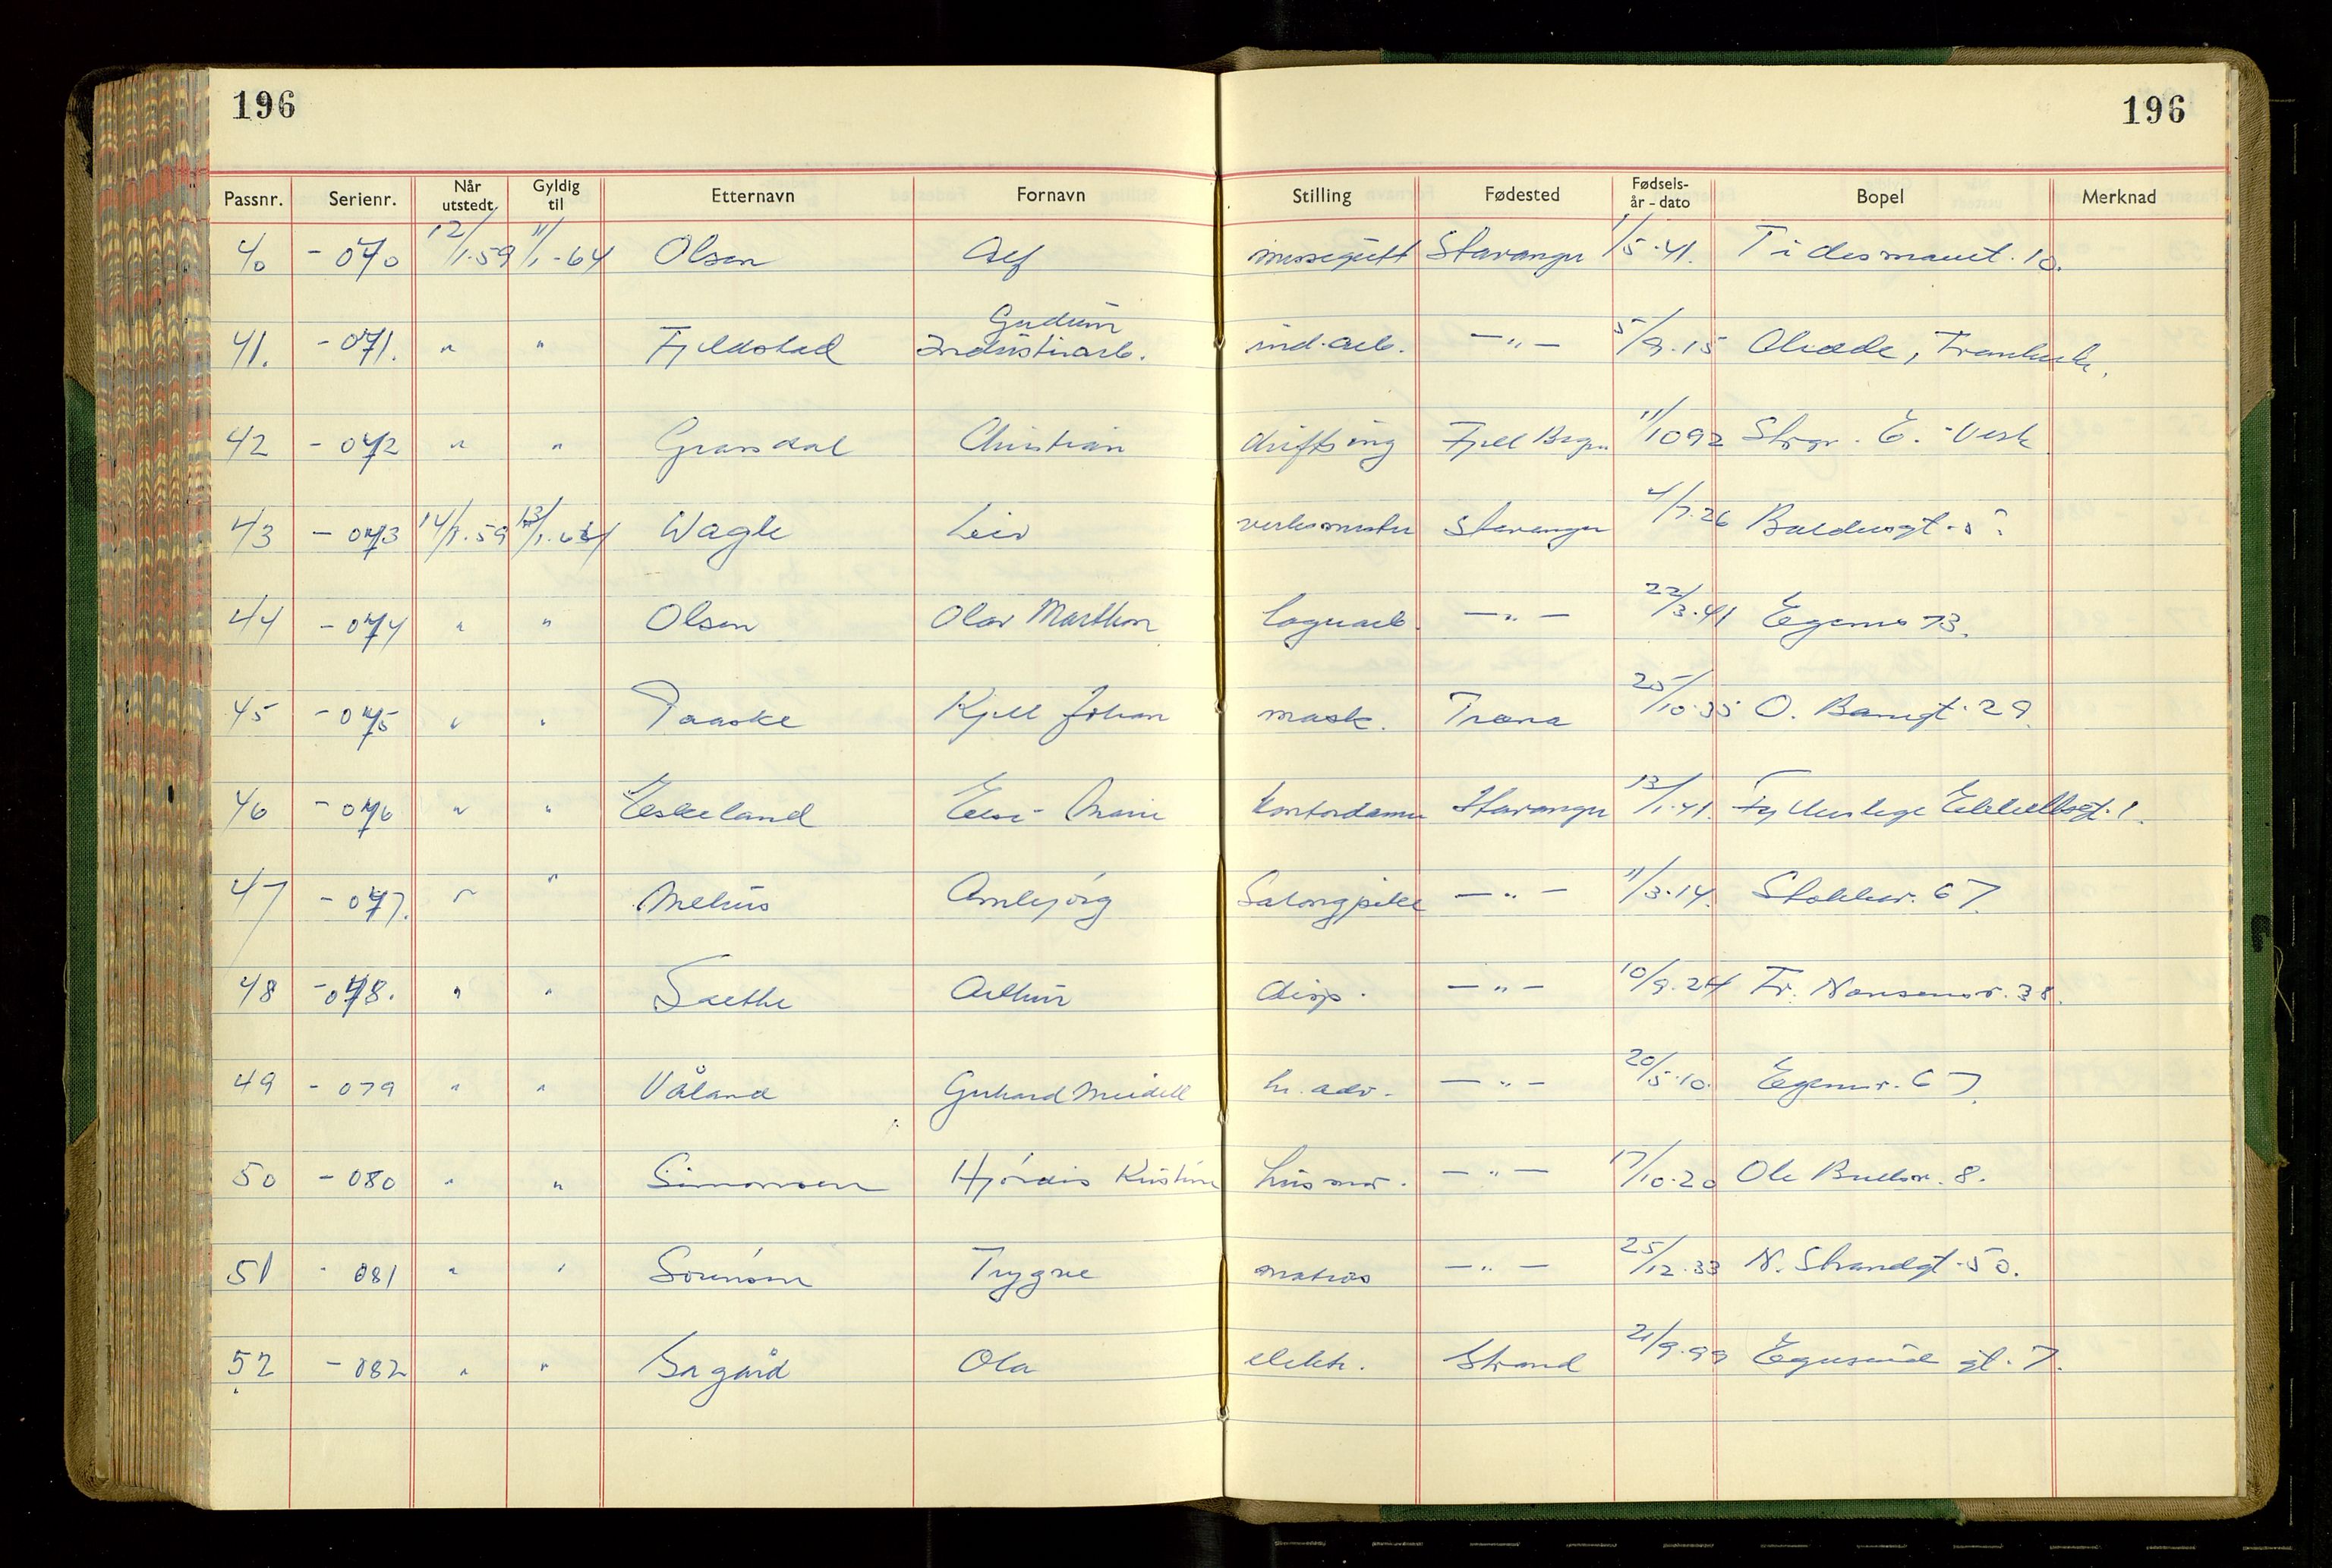 196 196
Passnr. Serienr. Når utstedt Gyldig til Etternavn Fornavn Stilling Fødested Fødsels-år - dato Bopel Merknad
40 - 070 12/1.59 11/1-64 Olsen messegutt Stavanger 1/5.41. Tidesmanst. 10.
41. - 071. " " Fjeldstad Gudrun Industriarb. ind.arb. - " - 5/9.15 Ølradde,
42 - 072 " " Gransdal Christian drifts ing Fjell Brgn 11/1092 Stvgr. E.-Verk
43 - 073 14/1.59 13/1.64 Wagle Leiv verksmester Stavanger 4/7.26 Baldersgt. 5
44 - 074 " " Olsen Olav Marthon lagerarb. - " - 22/3.41 Egenesv 73.
45 - 075 " " Paaske Kjell Johan mask. Træna 25/10.35 O. Banegt. 29.
46 - 076 " " Eskeland Else Marie kontordame Stavanger 13/1.41. gt. 1.
47 - 077. " " Melhus Annbjørg Salongpike - " - 11/3.14. Stokkav. 67.
48 - 078. " " Sæthe Arthur disp. - " - 10/9.24 Fr. Nansensv. 38.
49 - 079 " " Våland Gerhard Meidell hr. adv. - " - 20/5.10. Egenesv. 67.
50 - 080 " " Simonsen Hjørdis Kristine husmor. - " - 17/10.20 Ole Bullsv. 8.
51 - 081 " " Sørensen Trygve matros - " - 25/12.33 N. Strandgt. 50.
52 - 082 " " Ola elektr. Strand 21/9.99 Egersund gt. 7.